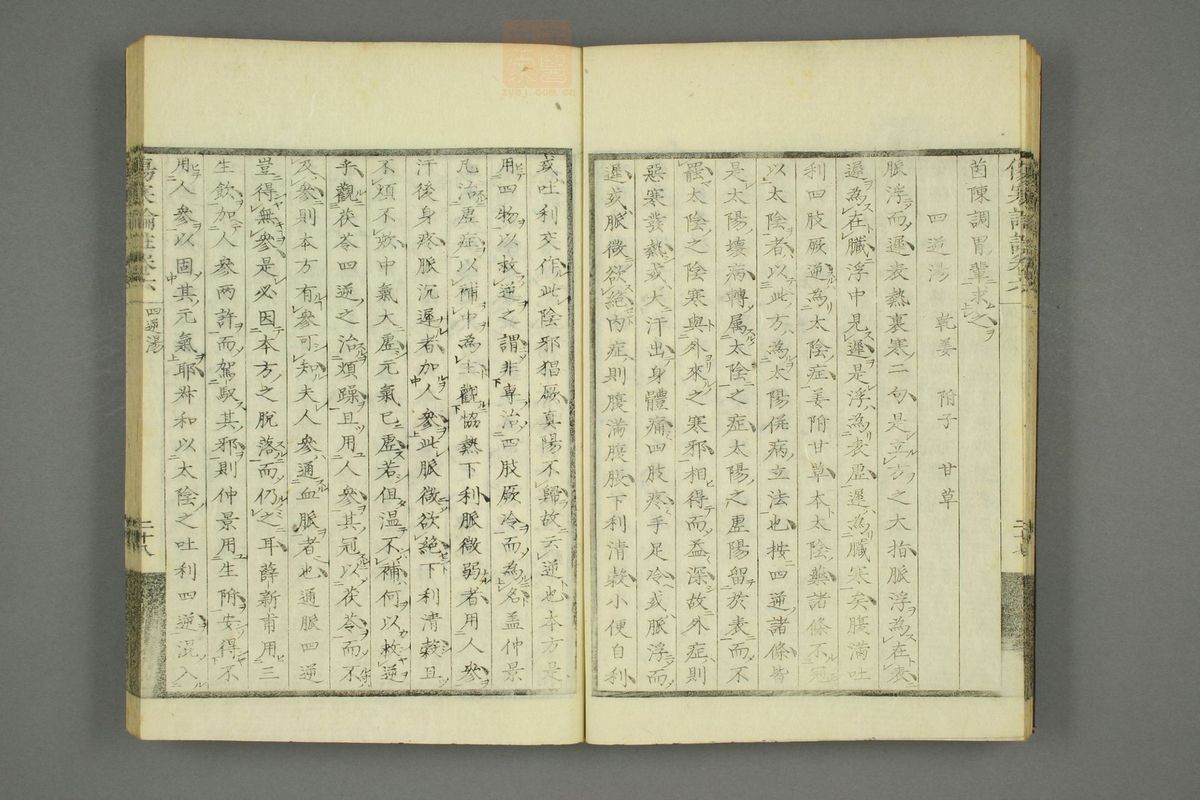 茵陳調胃輩求之
四逆湯 乾姜 附子 甘草
脈浮而遲表熱裏寒二句是立方之大指脈浮為在表
遲為在臟浮中見遲是浮為表虛遲為臟寒矣腹滿吐
利四肢厥逆為太陰症姜附甘草本太陰藥諸條不冠
以太陰者以此方為太陽併病立法也按四逆諸條皆
是太陽壞病轉属太陰之症太陽之虛陽留於表而不
罷太陰之陰寒與外來之寒邪相得而益深故外症則
惡寒發熱或大汗出身體痛四肢疼手足冷或脈浮而
遲或脈微欲絕內症則腹滿腹脹下利清穀小便自利
或吐利交作此陰邪猖厥真陽不歸故云逆也本方是
用四物以救逆之謂非專治四肢厥冷而為名盖仲景
凡治虛症以補中為主觀協熱下利脈微弱者用人參
汗後身疼脈沉遲者加人參此脈微欲絕下利清穀且
不煩不欬中氣大虛元氣已虛若但温不補何以救逆
乎觀茯苓四逆之治煩躁且用人參其冠以茯苓而不
及參則本方有參可知夫人參通血脈者也通脈四逆
豈得無參是必因本方之脫落而仍之耳薛新甫用三
生飲加人參两許而駕馭其邪則仲景用生附安得不
用人參以固其元氣耶叔和以太陰之吐利四逆混入
四逆湯
二十八
zyej.com.cn